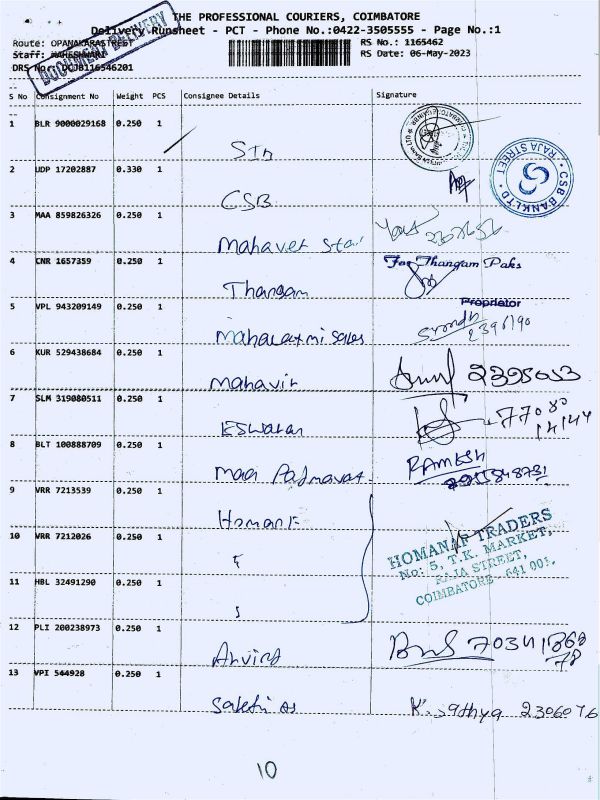 THE PROFESSIONAL COURIERS, COIMBATORE
Delivery Runsheet - PCT - Phone No.:0422-3505555 - Page No.:1
Route: OPANAKARASTREET
RS No.: 1165462
Staff: MAHESHWARA
RS Date: 06-May-2023
DRS No.: DCJB116546201
DOCUMENT DELIVERY
S No Consignment No Weight PCS Consignee Details Signature
1 BLR 9000029168 0.250 1
2 UDP 17202887 0.330 1 CSB
CSB BANK LTD RAJA STREET
3 MAA 859826326 0.250 1 Mahaveer
4 CNR 1657359 0.250 1 Thangam
For Thangam Paks
Proprietor
5 VPL 943209149 0.250 1 Mahalaxmi Sales
2396190
6 KUR 529438684 0.250 1 Mahavir
2395053
7 SLM 319080511 0.250 1 Eswaran
77080
14144
8 BLT 100888709 0.250 1 Maa Padmavat
RAMESH
9 VRR 7213539 0.250 1
10 VRR 7212026 0.250 1
11 HBL 32491290 0.250 1
HOMANAF TRADERS
No: 5, T.K. MARKET,
RAJA STREET,
COIMBATORE - 641 001.
12 PLI 200238973 0.250 1 Arvind
70341868
78
13 VPI 544928 0.250 1 Sakthi
K. Sathya 2306076
10